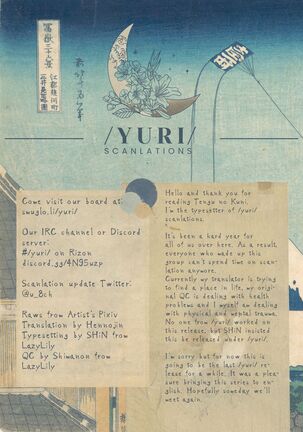 冨嶽三十六景
/YURI/
SCANLATIONS
Come visit our board at:
smuglo.li/yuri/
Our IRC channel or Discord
server:
#/yuri/ on Rizon
discord.gg/4N95uzp
Scanlation update Twitter:
@u_8ch
Raws from Artist's Pixiv
Translation by Hennojin
Typesetting by SHiN from
LazyLily
QC by Shiwanon from
LazyLily
Hello and thank you for
reading Tengu no Kuni.
I'm the typesetter of /yuri/
scanlations.
It's been a hard year for
all of us over here. As a result,
everyone who made up this
group can't spend time on scan-
lation anymore.
Currently my translator is trying
to find a place in life, my origi-
nal QC is dealing with health
problems and I myself am dealing
with physical and mental trauma.
No one from /yuri/ worked on
this release, but SHiN insisted
this be released under /yuri/.
I'm sorry but for now this is
going to be the last /yuri/ re-
lease for a while. It was a plea-
sure bringing this series to en-
glish. Hopefully someday we'll
meet again.